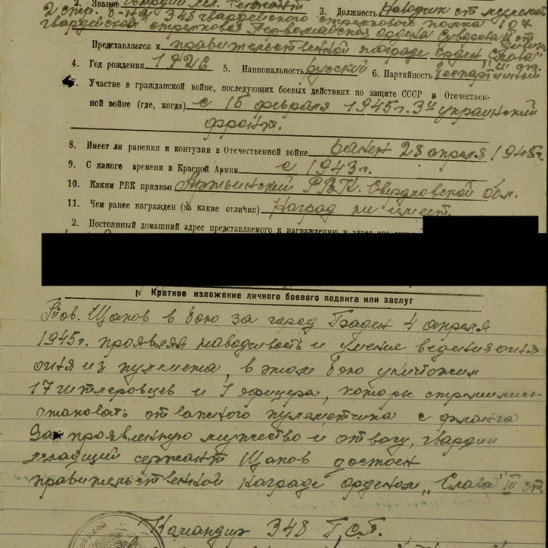 2. Звание Гвардии мл. сержант 3. Должность Наводчик ст. пулемета
2 стр. б-на 348 гвардейского стрелкового полка 107
гвардейской стрелковой Первомайской ордена Суворова II ст. дивизии
Представляется к правительственной награде орден "Слава" III ст.
4. Год рождения 1926 5. Национальность русский 6. Партийность беспартийный
7. Участие в гражданской войне, последующих боевых действиях по защите СССР и Отечествен-
ной войне (где, когда) с 16 февраля 1945 г. 3й украинский
фронт.
8. Имеет ли ранения и контузии в Отечественной войне ранен 23 апреля 1945 г.
9. С какого времени в Красной Армии с 1943 г.
10. Каким РВК призван РВК. Свердловской обл.
11. Чем ранее награжден (за какие отличия) Наград не имеет.
2. Постоянный домашний адрес представляемого к награждению и
I. Краткое изложение личного боевого подвига или заслуг
Тов. Щапов в бою за город Баден 4 апреля
1945 г. проявляя находчивость и умение ведения огня
огня из пулемета, в этом бою уничтожил
17 гитлеровцев и 1 офицера, которы стремились
атаковать отважного пулеметчика с фланга
За проявленную мужество и отвагу, гвардии
младший сержант Щапов достоен
правительственной награде орденом "Слава" III ст.
Командир 348 Г.С.П.